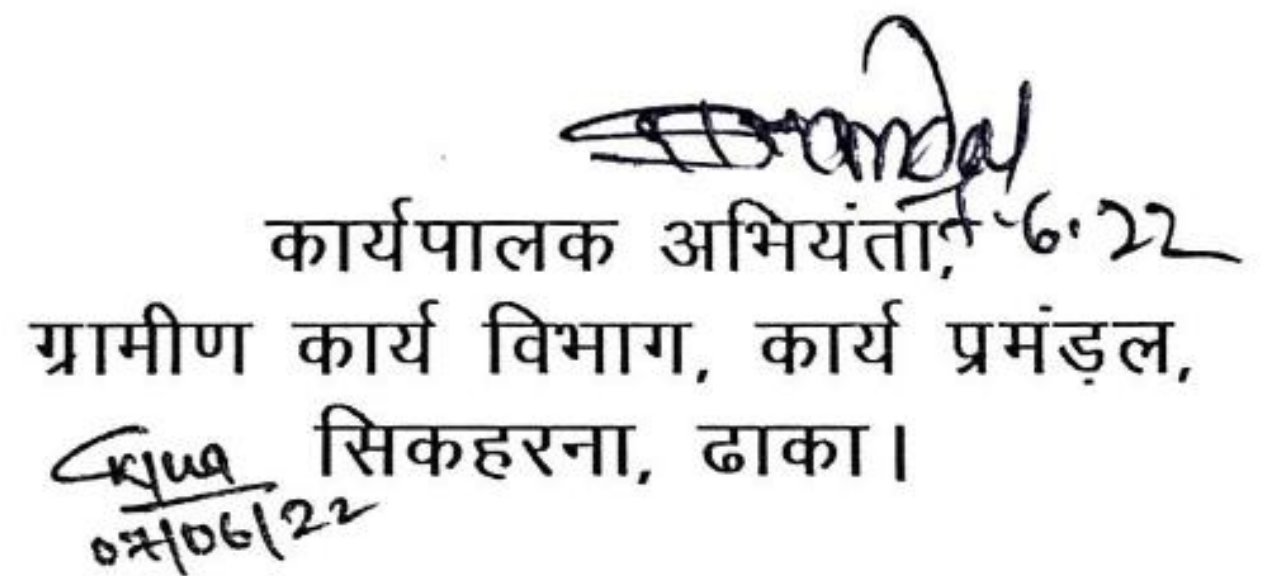 कार्यपालक अभियंता, 7.6.22
ग्रामीण कार्य विभाग, कार्य प्रमंड़ल,
सिकहरना, ढाका।
07/06/22